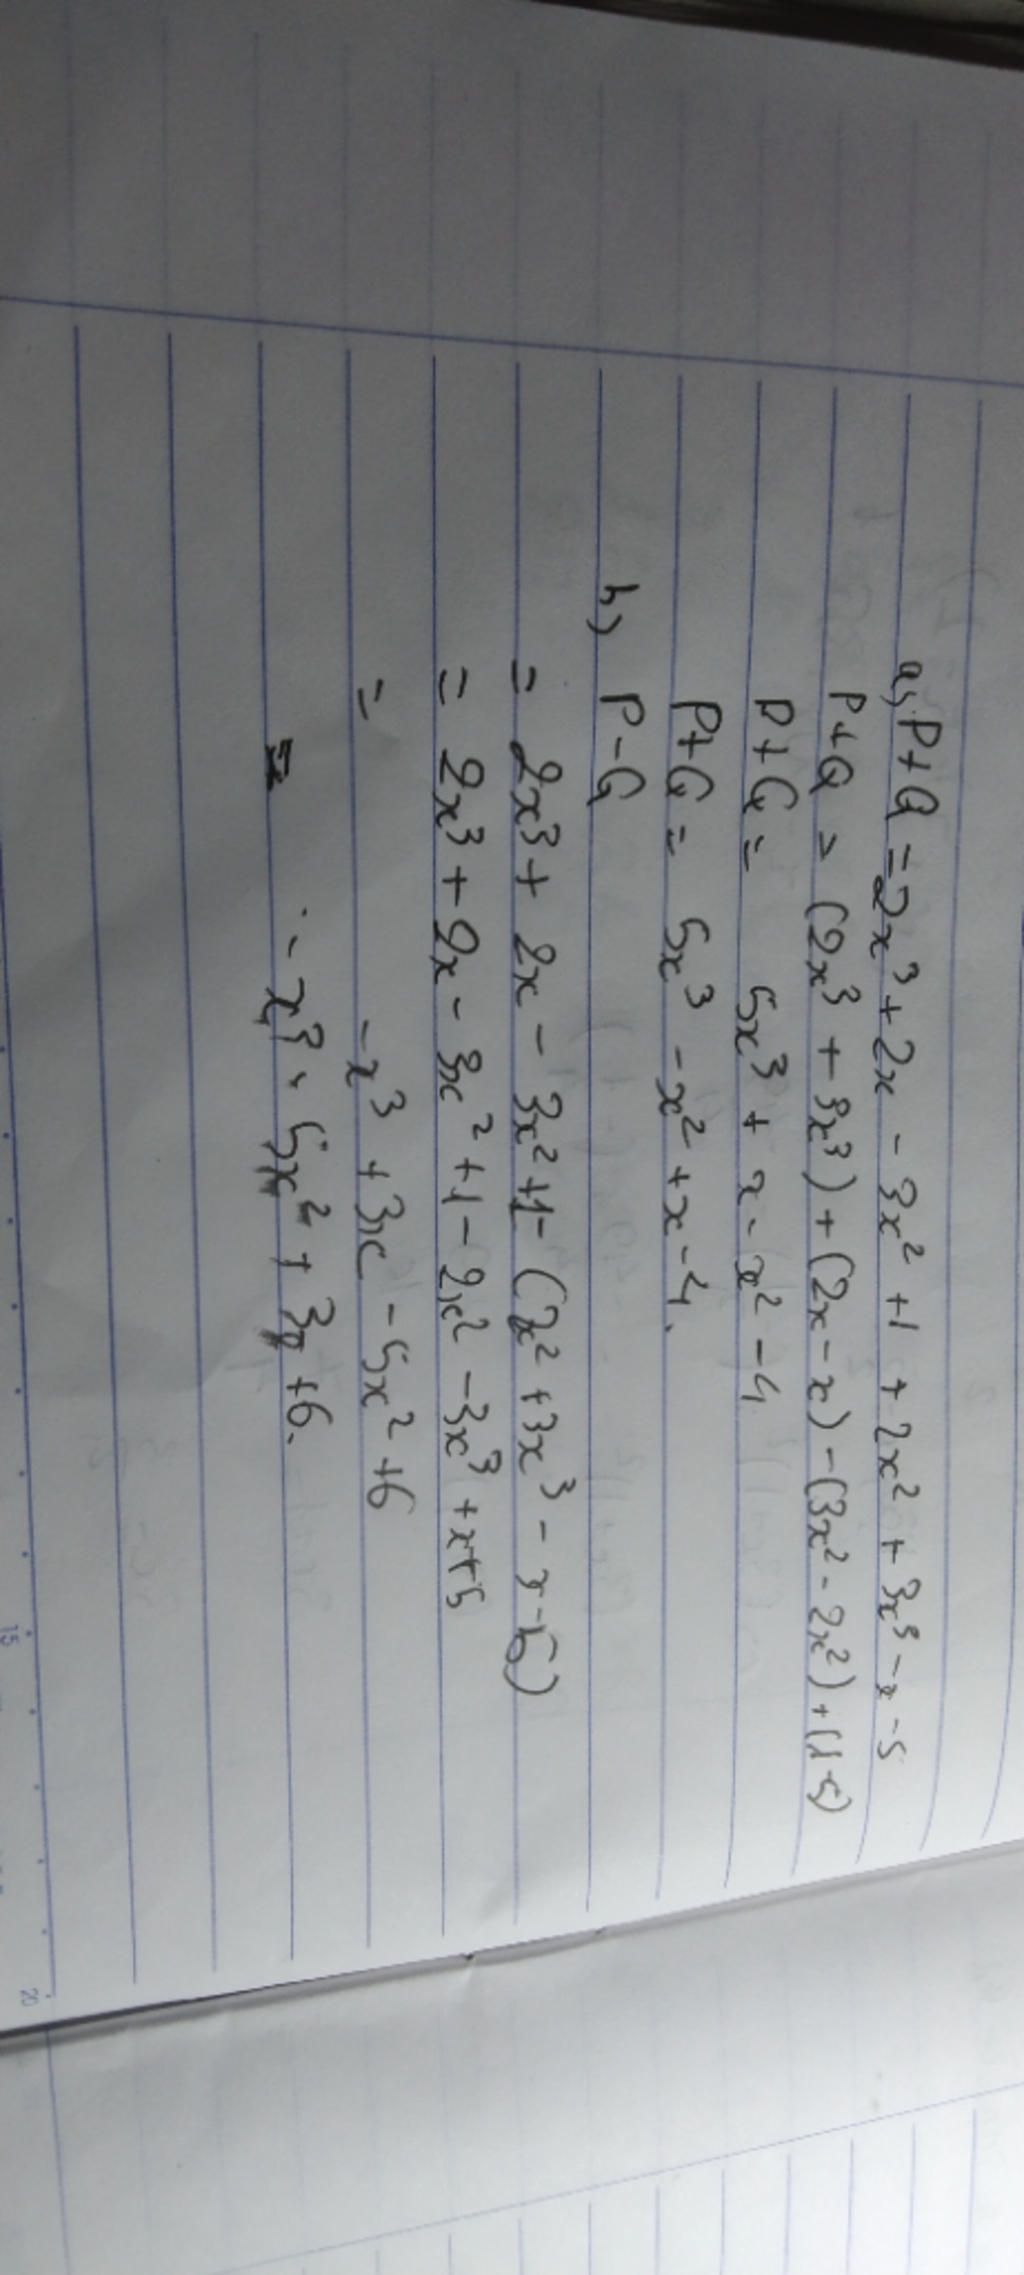 a, P+Q = 2x³ + 2x - 3x² + 1 + 2x² + 3x³ - x - 5
P+Q = (2x³ + 3x³) + (2x - x) - (3x² - 2x²) + (1-5)
P+Q = 5x³ + x - x² - 4
P+Q = 5x³ - x² + x - 4.
b, P-Q
= 2x³ + 2x - 3x² + 1 - (2x² + 3x³ - x - 5)
= 2x³ + 2x - 3x² + 1 - 2x² - 3x³ + x + 5
= -x³ + 3x - 5x² + 6
= -x³ - 5x² + 3x + 6.
15
20